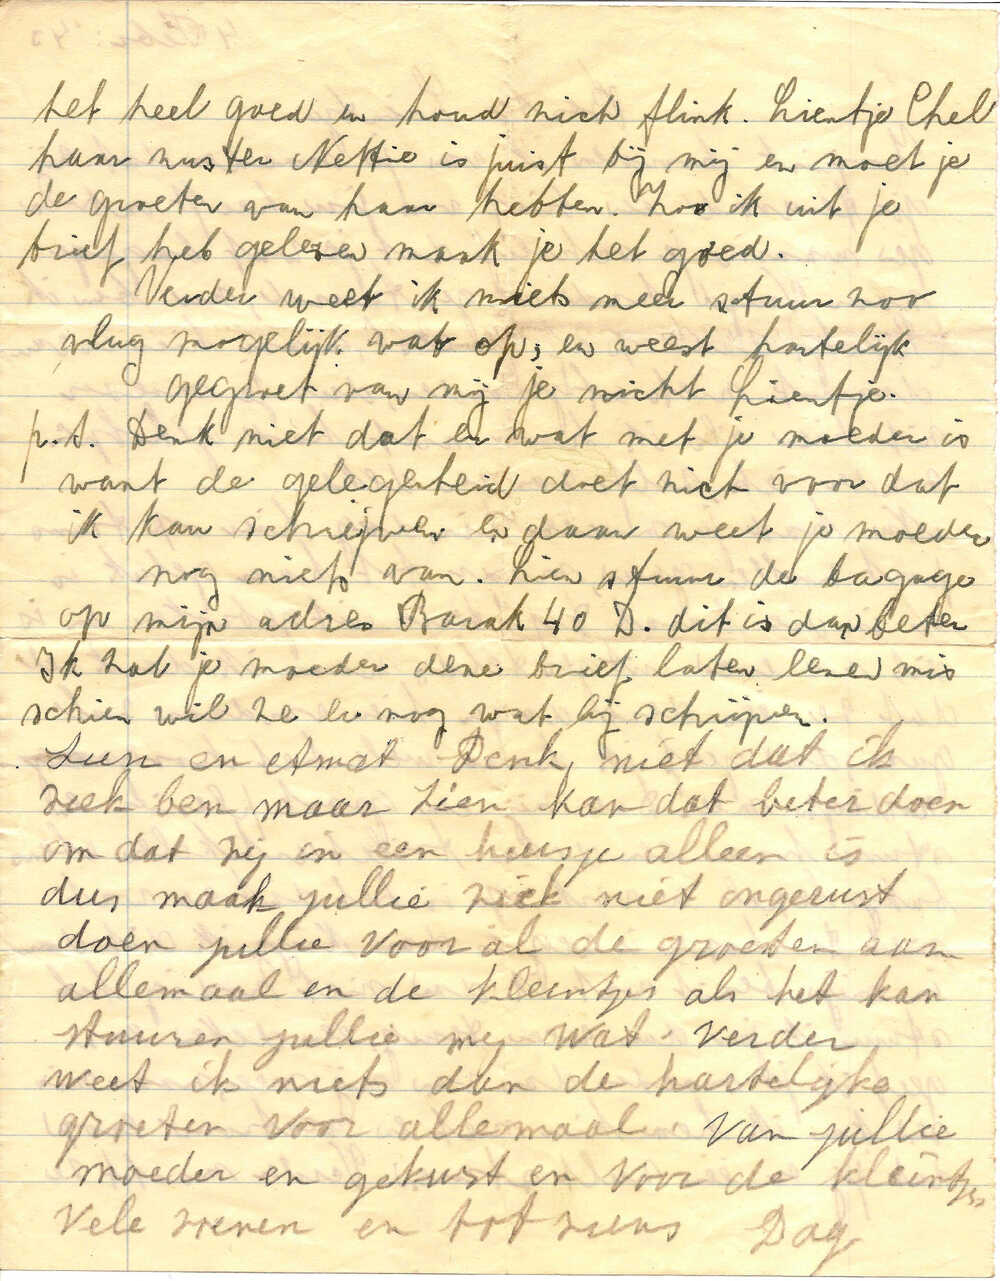 het heel goed en houd zich flink. Lientje Chel
haar zuster Nettie is juist bij mij en moet je
de groeten van haar hebben. Zoo ik uit je
brief heb gelezen maak je het goed.
Verder weet ik niets meer stuur zoo
vlug mogelijk wat op, en weest hartelijk
gegroet van mij je nicht Lientje.
p.s. Denk niet dat er wat met je moeder is
want de gelegenheid doet zich voor dat
ik kan schrijven en daar weet je moeder
nog niets van. Lien stuur de bagage
op mijn adres Barak 40 D. dit is dan beter
Ik zal je moeder deze brief laten lezen mis
schien wil ze er nog wat bij schrijven.
en Denk niet dat ik
ziek ben maar Lien kan dat beter doen
om dat zij in een huisje alleen is
dus maak jullie niet ongerust
doen jullie voor al de groeten aan
allemaal en de kleintjes als het kan
sturen jullie mij wat. Verder
weet ik niets dan de hartelijke
groeten voor allemaal Van jullie
moeder en gekust en voor de kleintjes
vele zoenen en tot ziens Dag